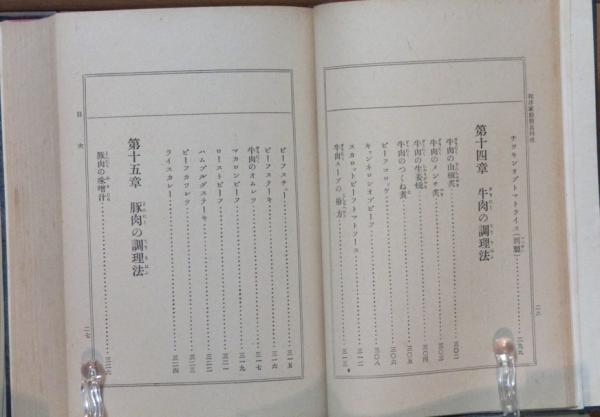 チツキンオブトマトライス(別製)……二九九
第十四章 牛肉の調理法
牛肉の山椒煮……三〇二
牛肉のメンチ煮……三〇三
牛肉の生姜焼……三〇四
牛肉のつくね煮……三〇五
ビーフコロツケ……三〇六
キャンネロンオブビーフ……三〇八
スカロツトビーフトマトソース……三一二
牛肉スープの拵へ方……三一三
二六
ビーフスチュー……三一五
ビーフステーキ……三一六
牛肉のオムレツ……三一七
マカロンビーフ……三一九
ローストビーフ……三二一
ハムブルグステーキ……三二二
ビーフカツレツ……三二三
ライスカレー……三二四
第十五章 豚肉の調理法
豚肉の味噌汁
目次
二七